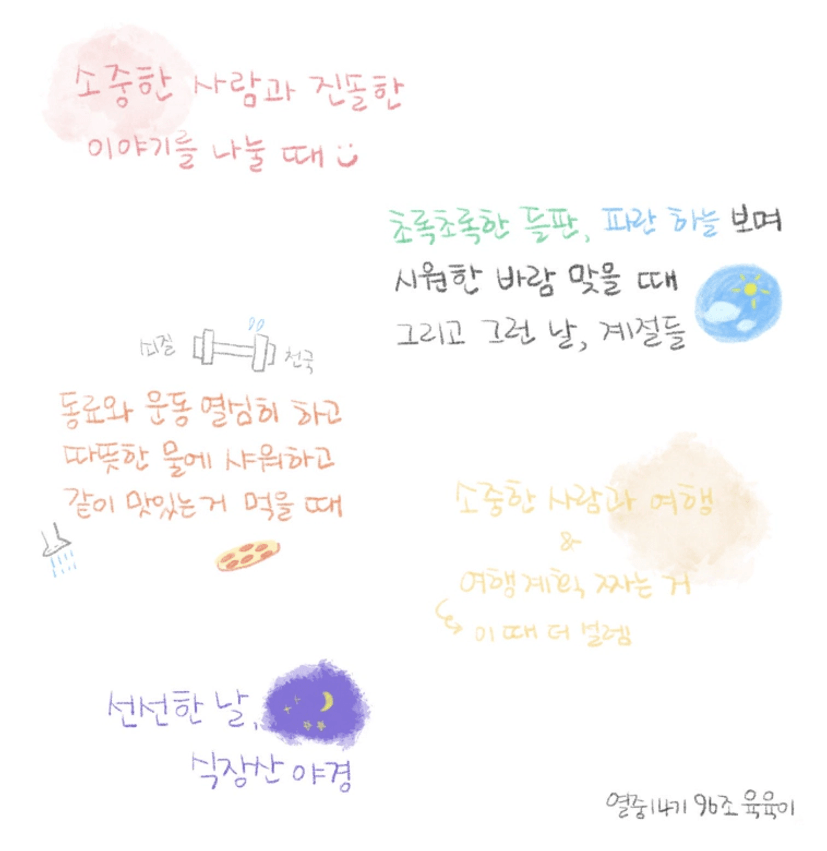 소중한 사람과 진솔한
이야기를 나눌 때
초록초록한 들판, 파란 하늘 보며
시원한 바람 맞을 때
그리고 그런 날, 계절들
뇌질 천국
동료와 운동 열심히 하고
따뜻한 물에 샤워하고
같이 맛있는거 먹을 때
소중한 사람과 여행
&
여행계획 짜는 거
이 때 더 설렘
선선한 날,
식장산 야경
열중14기 96조 육육이